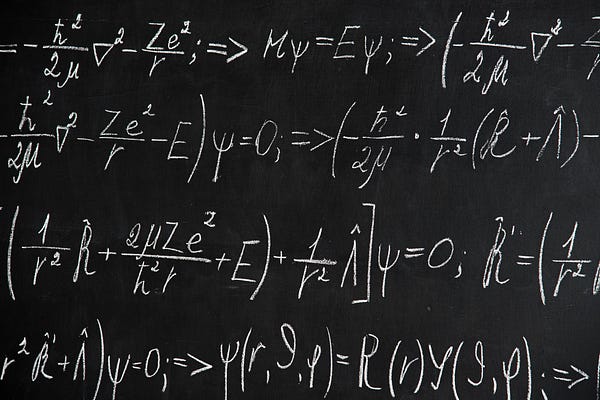 = - ħ²/2μ ∇² - Ze²/r ; => Mψ = Eψ ; => (- ħ²/2μ ∇² - Z
ħ²/2μ ∇² - Ze²/r - E) ψ = 0 ; => (- ħ²/2μ · 1/r² (R̂ + Λ̂) -
(1/r² R̂ + 2μZe²/ħ²r + E) + 1/r² Λ̂] ψ = 0 ; R̂' = (1/r²
r² R̂' + Λ̂) ψ = 0 ; => ψ(r, ϑ, φ) = R(r) Y(ϑ, φ) ; =>